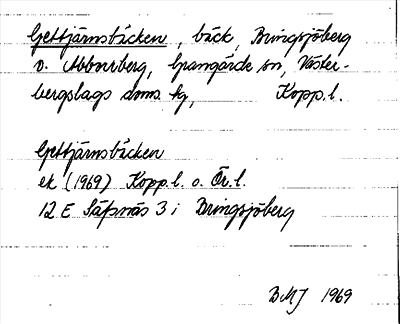 Gettjärnsbäcken, bäck, Bringsjöberg
o. Abborrberg, Grangärde sn, Väster-
bergslags doms. tg, Kopp. l.
Gettjärnsbäcken
ek (1969) Kopp. l. o. Ör. l.
12 E Säfsnäs 3 i Bringsjöberg
BMJ 1969